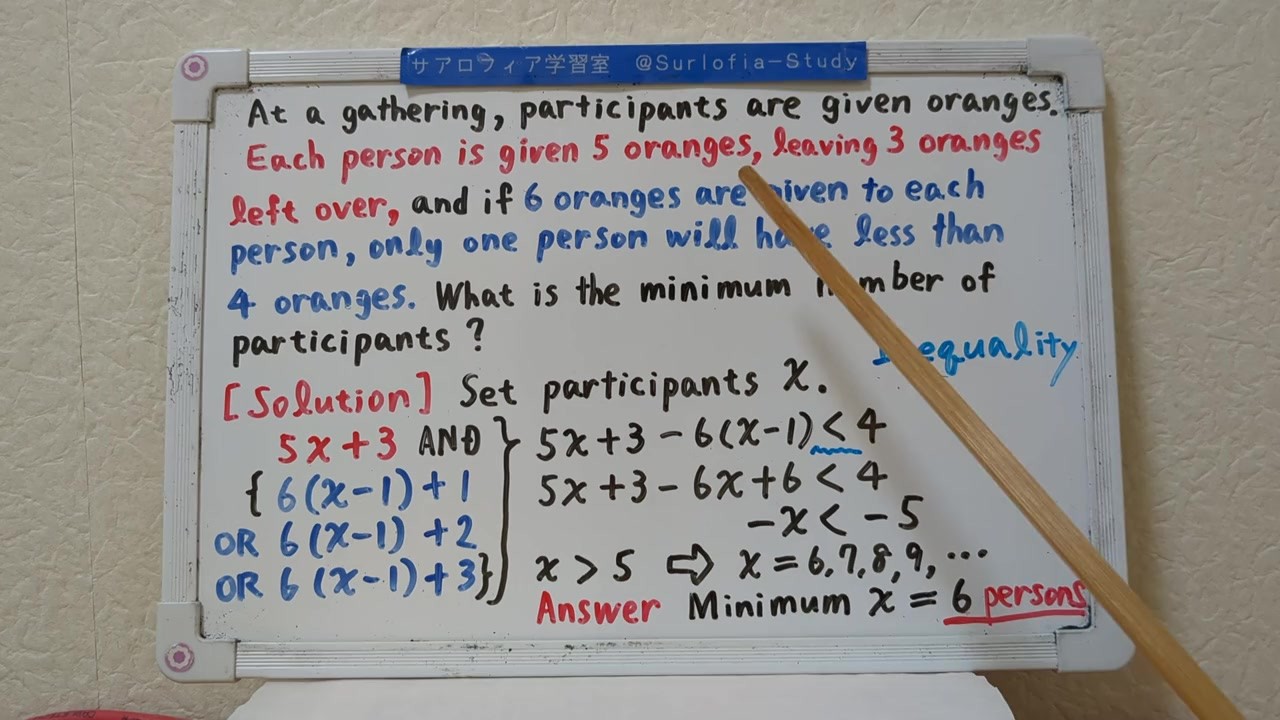 サアロフィア学習室 @Surlofia-Study
At a gathering, participants are given oranges.
Each person is given 5 oranges, leaving 3 oranges
left over, and if 6 oranges are given to each
person, only one person will have less than
4 oranges. What is the minimum number of
participants?
Inequality
[Solution] Set participants x.
5x+3 AND
{ 6(x-1)+1
OR 6(x-1)+2
OR 6(x-1)+3}
5x+3-6(x-1)<4
5x+3-6x+6<4
-x<-5
x>5 ⇨ x=6,7,8,9,...
Answer Minimum x = 6 persons